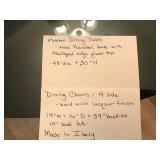 Modern Dining Table
- wood Pedestal base with
scalloped edge glass top
- 48" dia. x 30" H
Dining Chairs - 4 side
- wood with lacquer finish
19" W x 16" D x 39" back ht
19" seat ht.
Made in Italy